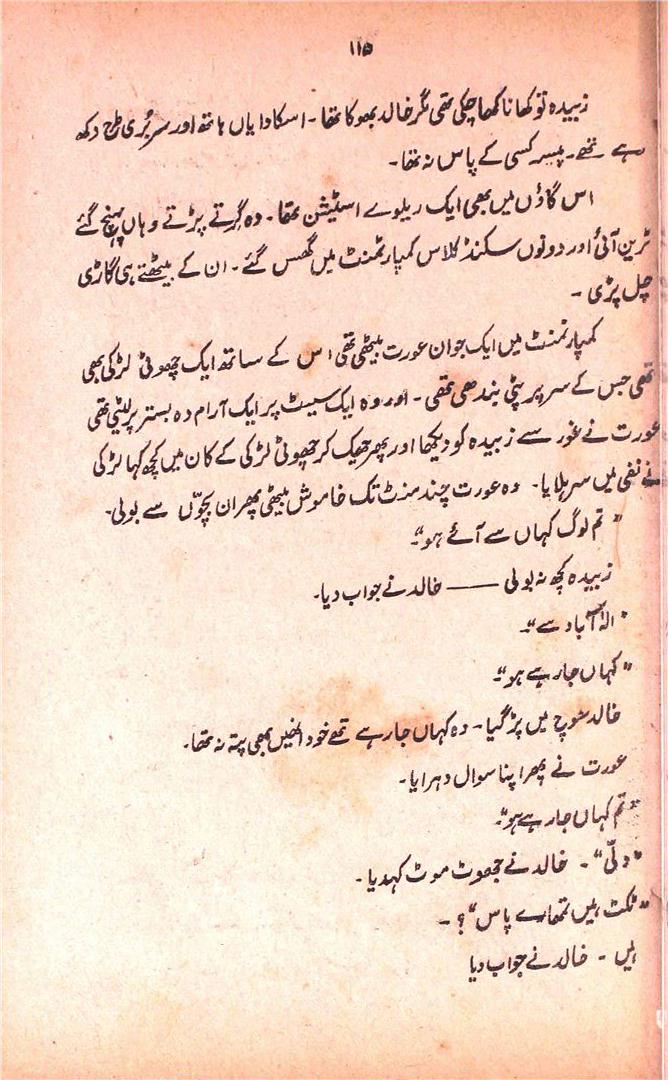 ۱۱۵
زبیدہ تو کھانا کھا چکی تھی مگر خالد بھوکا تھا۔ اسکا دایاں ہاتھ اور سر بُری طرح دکھ
رہے تھے۔ پیسر کسی کے پاس نہ تھا۔
اس گاؤں میں بھی ایک ریلوے اسٹیشن تھا۔ وہ گرتے پڑتے وہاں پہنچ گئے
ٹرین آئی اور دونوں سکنڈ کلاس کمپارٹمنٹ میں گھس گئے۔ ان کے بیٹھتے ہی گاڑی
چل پڑی۔
کمپارٹمنٹ میں ایک جوان عورت بیٹھی تھی اس کے ساتھ ایک چھوٹی لڑکی بھی
تھی جس کے سر پر پٹی بندھی تھی۔ اور وہ ایک سیٹ پر ایک آرام دہ بستر پر لیٹی تھی
عورت نے غور سے زبیدہ کو دیکھا اور پھر جھک کر چھوٹی لڑکی کے کان میں کچھ کہا لڑکی
نے نفی میں سر ہلایا۔ وہ عورت چند منٹ تک خاموش بیٹھی پھر ان بچوّں سے بولی۔
"تم لوگ کہاں سے آئے ہو"۔
زبیدہ کچھ نہ بولی —— خالد نے جواب دیا۔
"الہٰ آباد سے"۔
"کہاں جا رہے ہو"۔
خالد سوچ میں پڑ گیا۔ وہ کہاں جا رہے تھے خود انھیں بھی پتہ نہ تھا۔
عورت نے پھر اپنا سوال دہرایا۔
"تم کہاں جا رہے ہو"۔
"دلّی"۔ خالد نے جھوٹ موٹ کہدیا۔
"ٹکٹ ہیں تمھارے پاس"؟۔
ہیں۔ خالد نے جواب دیا